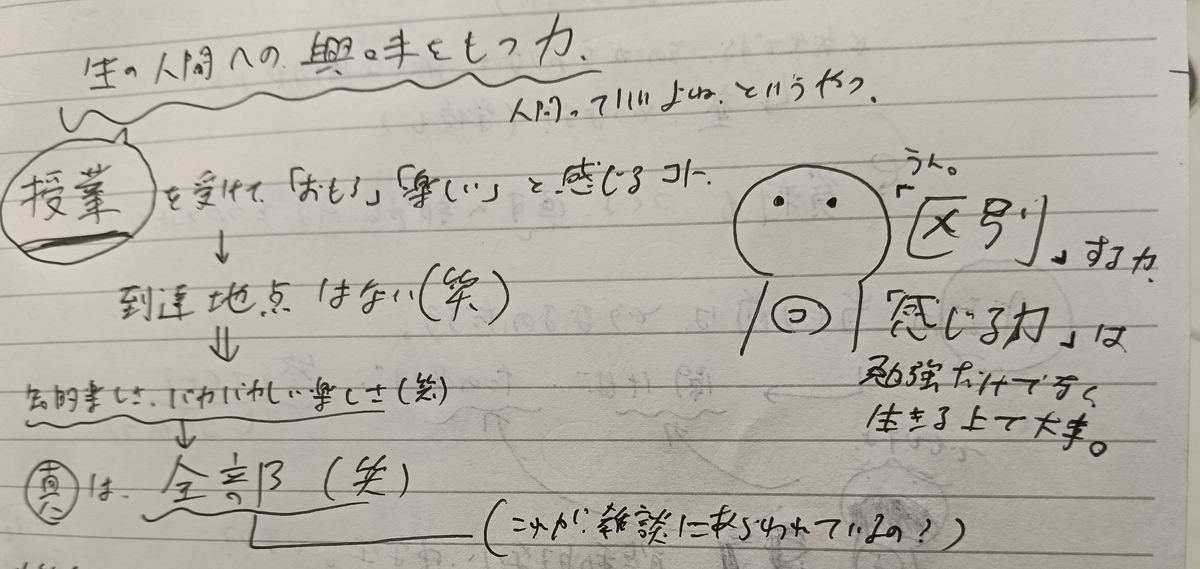 生の人間への興味をもつ力.
人間っていいよね. というやつ.
授業を受けて、「おもろ」「楽しい」と感じるコト.
↓
到達地点はない(笑)
⇓
知的楽しさ、バカバカしい楽しさ(笑)
↓
真は. 全部(笑)
(これが雑談にあらわれているの?)
うん。
「[区別]」する力.
「感じる力」は
勉強だけでなく
生きる上で大事。